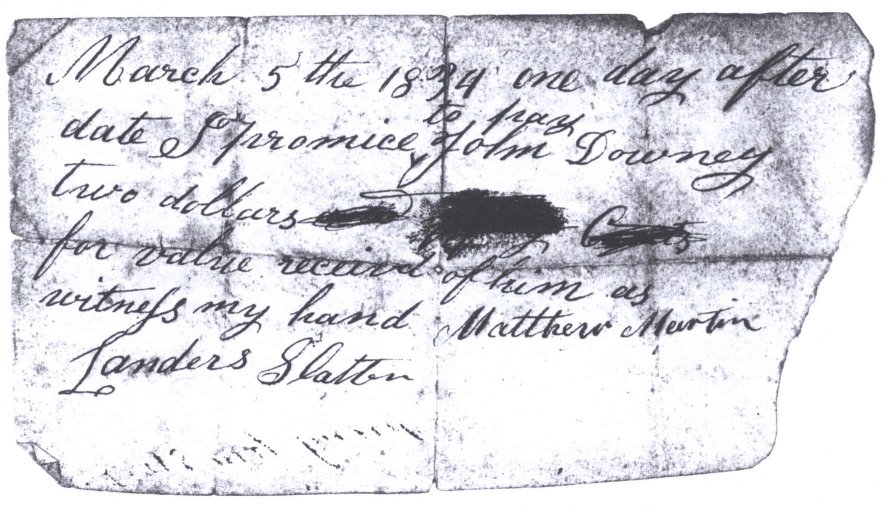 March 5 the 1834 one day after
to pay
date I promice John Downey
two dollars
for value receivd of him as
witness my hand Matthew Martin
Landers Slatten